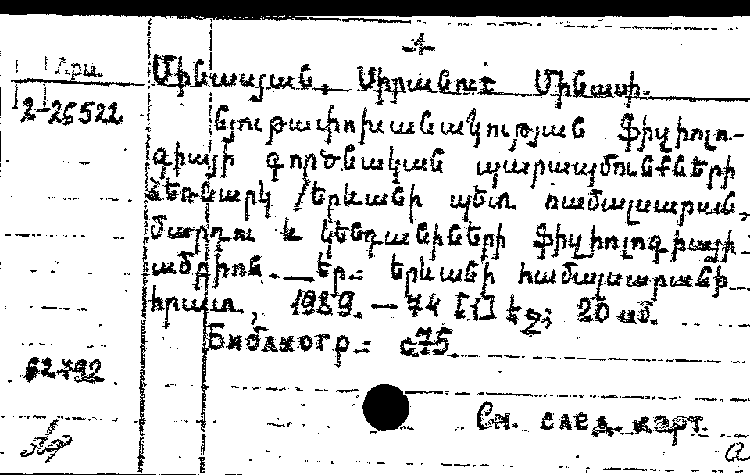 4
Մինասյան, Սիրանուշ Մինասի.
2-26522
Նյութափոխանակության ֆիզիոլո-
գիայի գործնական պարապմունքների
ձեռնարկ /Երևանի պետ. համալսարան,
Մարդու և կենդանիների ֆիզիոլոգիայի
ամբիոն. — Եր.: Երևանի համալսարանի
հրատ., 1989. — 74 [1] էջ; 20 սմ.
Библиогр.: с 75.
62792
См. след. карт.
а